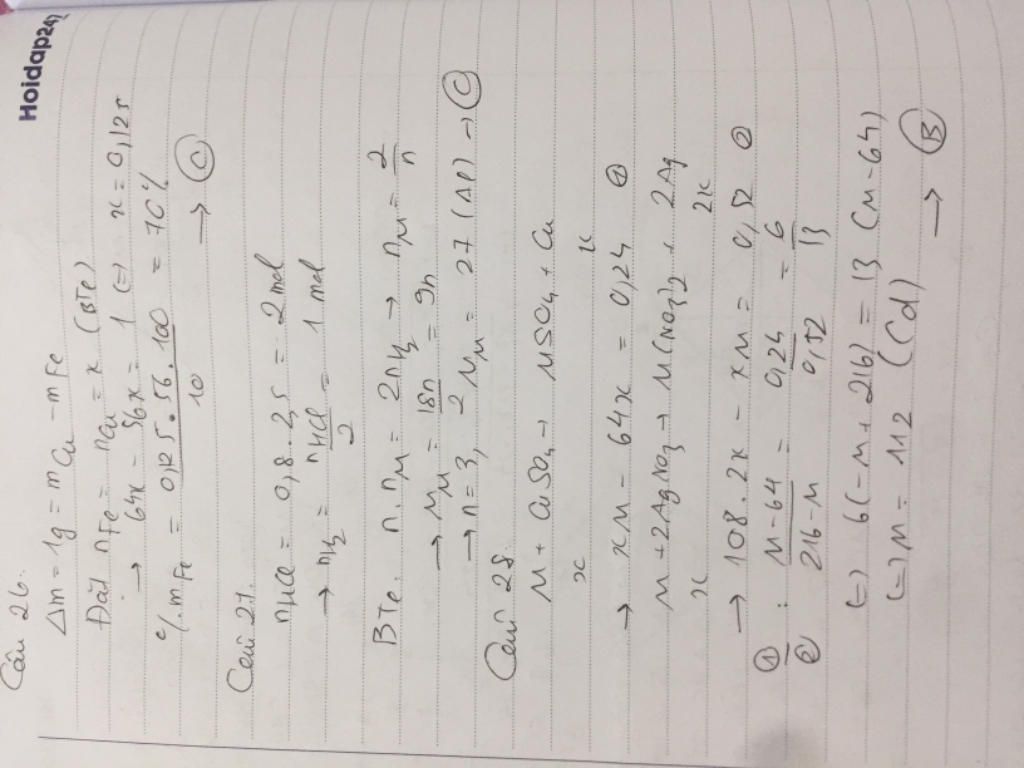 Hoidap247
Câu 26.
Δm = 1g = mCu - mFe
Đặt nFe = nCu = x (BTe)
→ 64x - 56x = 1 (=) x = 0,125
%mFe = 0,125.56.100 / 10 = 70% → (C)
Câu 27.
nHCl = 0,8.2,5 = 2 mol
→ nH2 = nHCl / 2 = 1 mol
BTe. n.nM = 2nH2 → nM = 2/n
→ MM = 18n / 2 = 9n
→ n = 3, MM = 27 (Al) → (C)
Câu 28.
M + CuSO4 → MSO4 + Cu
x x
→ xM - 64x = 0,24 (1)
M + 2AgNO3 → M(NO3)2 + 2Ag
x 2x
→ 108.2x - xM = 0,52 (2)
(1)/(2) : M-64 / 216-M = 0,24 / 0,52 = 6/13
(=) 6(-M + 216) = 13 (M-64)
(=) M = 112 (Cd)
→ (B)